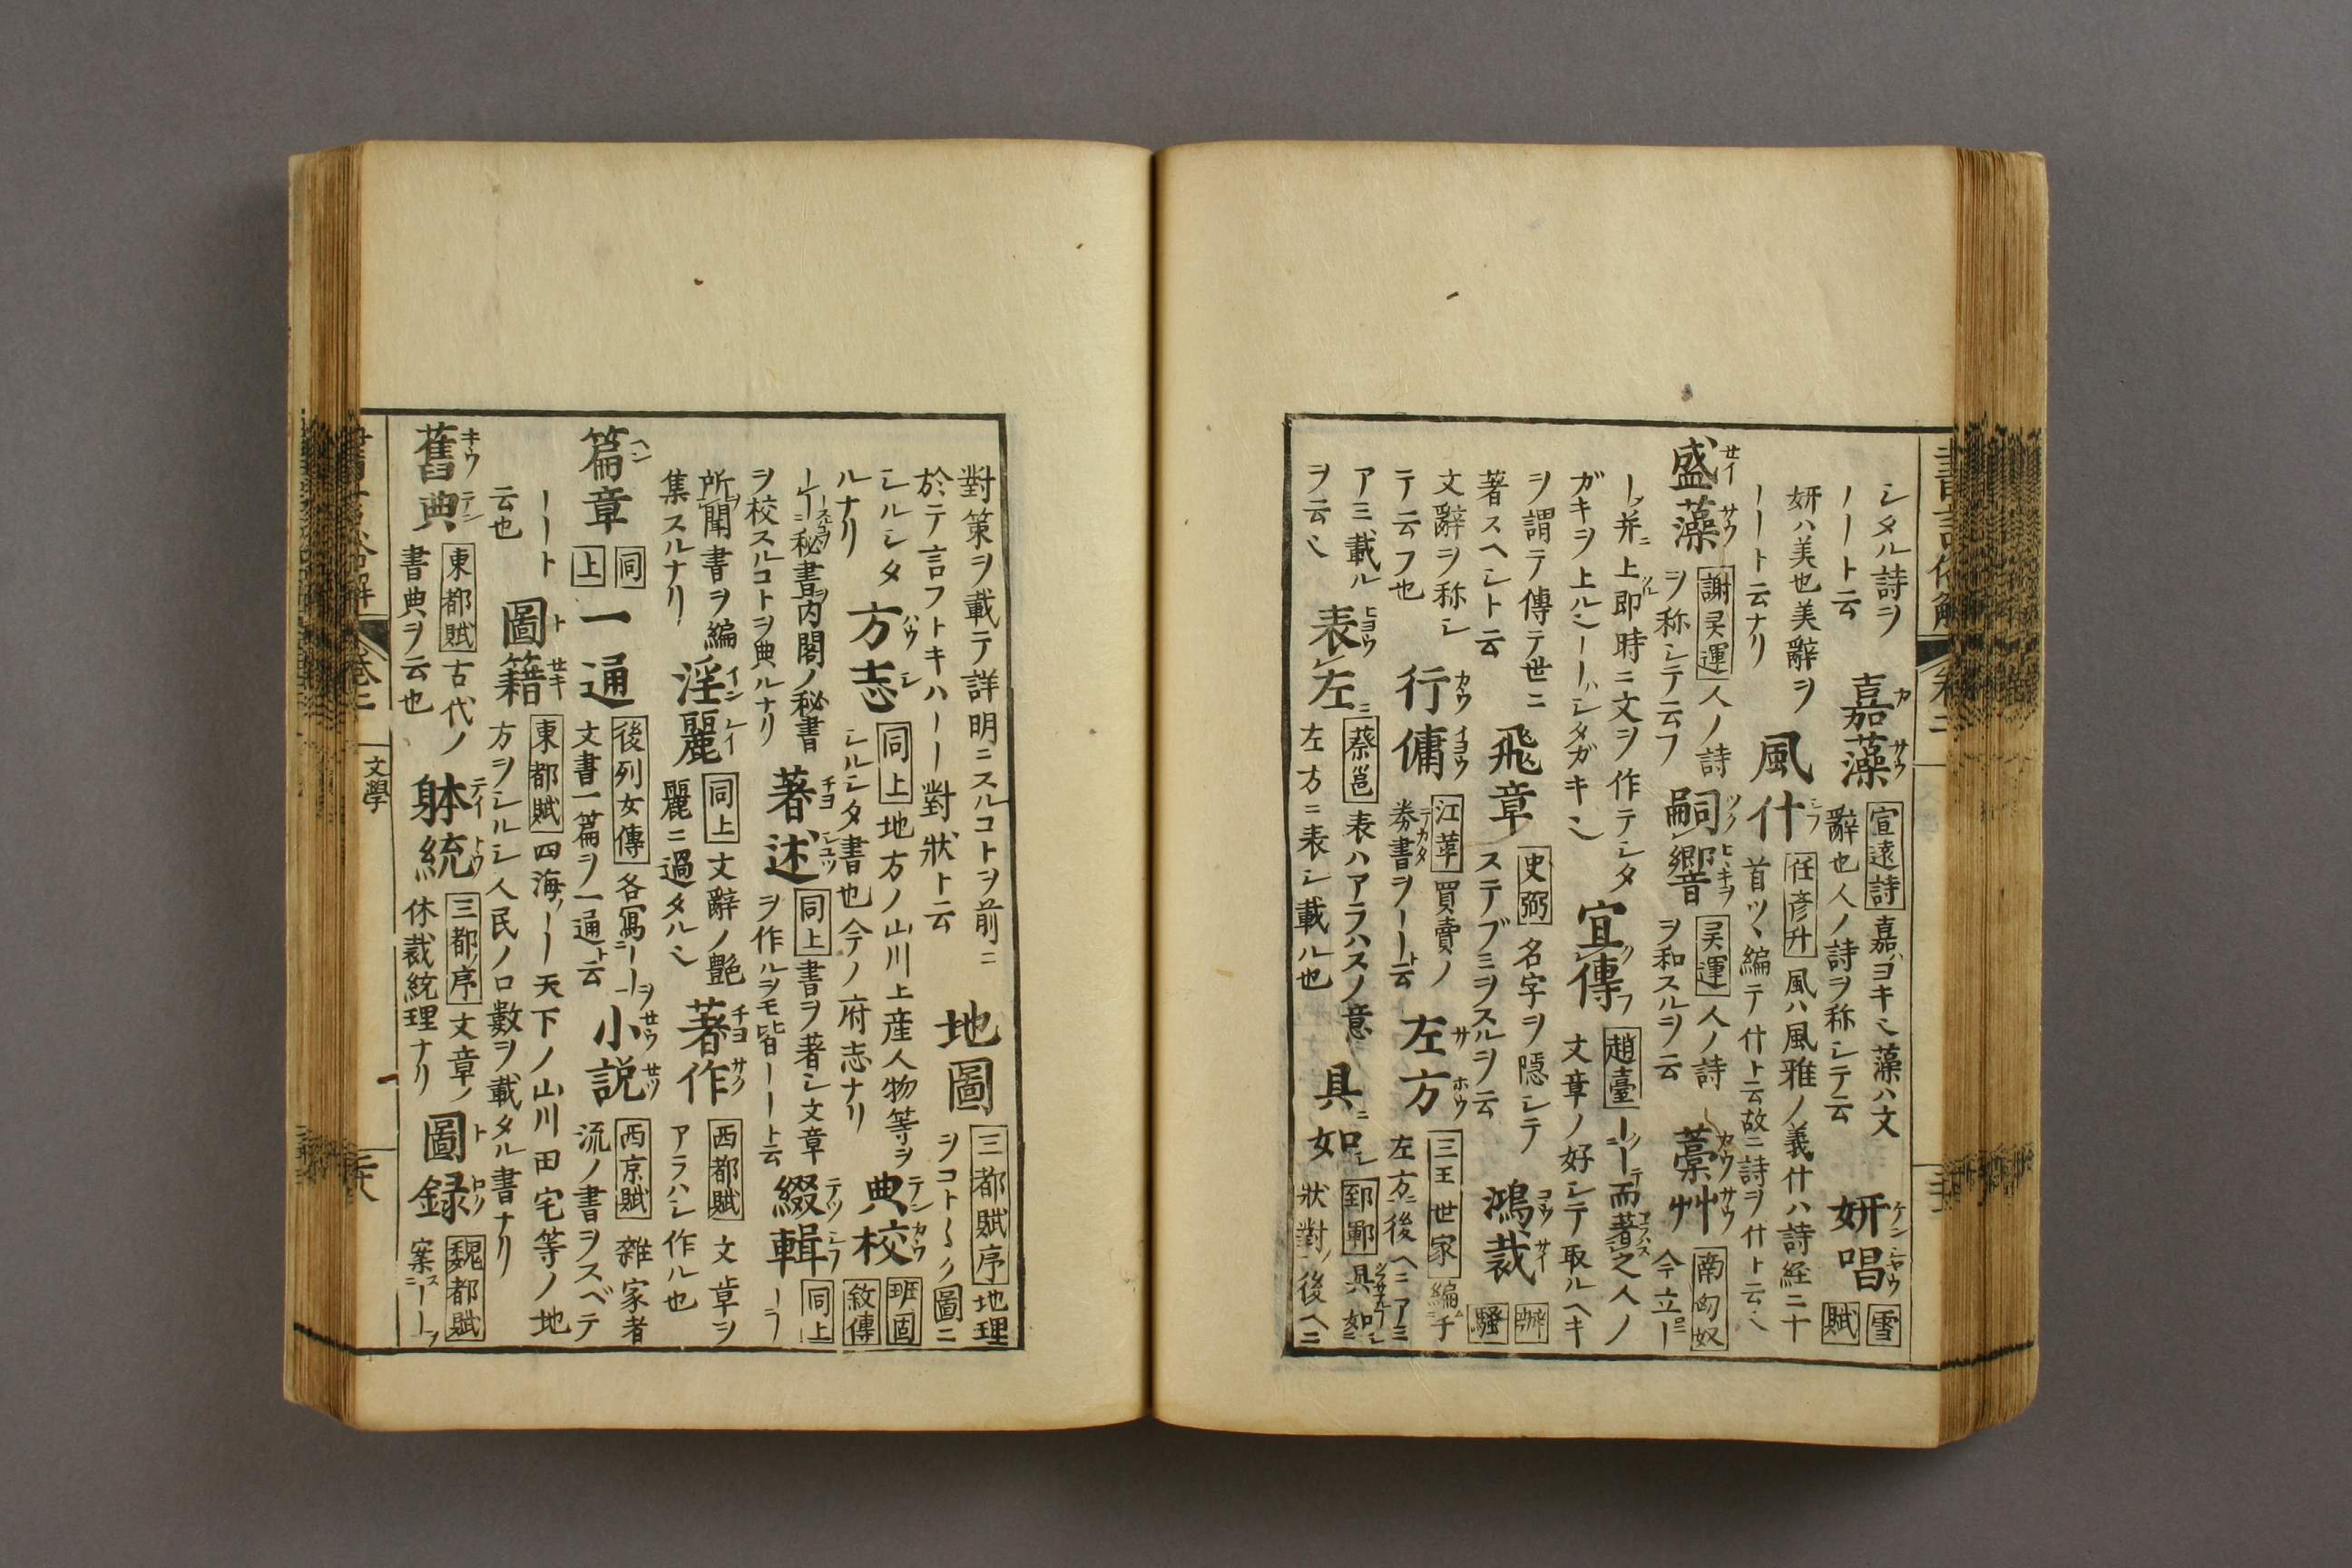 シタル詩ヲ
ノ――ト云
嘉藻 カサウ
宣遠詩 嘉ハヨキ也藻ハ文
辭也人ノ詩ヲ称シテ云
妍唱 ケンシヤウ
雪賦
妍ハ美也美辭ヲ
――ト云ナリ
風什 シフ
任彦升 風ハ風雅ノ義什ハ詩経ニ十
首ツヽ編テ什ト云故ニ詩ヲ什ト云〻
盛藻 サイサウ
謝灵運 人ノ詩
ヲ称シテ云フ
嗣響 ツクヒヽキヲ
灵運 人ノ詩
ヲ和スルヲ云
藁艸 カウサウ
南匈奴
今立―
并ニ上ル即時ニ文ヲ作テシタ
ガキヲ上ル〻――ハシタガキ〻
宜傳
趙臺 ――而著之人ノ
文章ノ好シテ取ルヘキ
ヲ謂テ傳テ世ニ
著スヘシト云
飛章
史弼 名字ヲ隠シテ
ステブミヲスルヲ云
鴻裁 コウサイ
辦騷
文辭ヲ称シ
テ云フ也
行傭 カウイヨウ
江革 買賣ノ
券書ヲ――ト云 テカタ
左方 サホウ
三王世家 編于
左方ニ後ヘニアミ
アミ載ル
ヲ云〻
表左 ヒヨウ
蔡邕 表ハアラハスノ意
左方ニ表シ載ル也
具如
具如
狀對ノ後ヘニ
對策ヲ載テ詳明ニスルコトヲ前ニ
於テ言フトキハ――對狀ト云
地圖
三都賦序 地理
ヲコト〱ク圖ニ
シルシタ
ルナリ
方志 ハウシ
同上 地方ノ山川土産人物等ヲ
シルシタ書也今ノ府志ナリ
典校 テンカウ
班固敘傳
――秘書内閣ノ秘書
ヲ校スルコトヲ典ルナリ
著述 チヨシユツ
同上 書ヲ著シ文章
ヲ作ルヲモ皆――ト云
綴輯 テツシフ
同上
所聞書ヲ編
集スルナリ
淫麗 インレイ
同上 文辭ノ艶
麗ニ過タル〻
著作 チヨサク
西都賦 文章ヲ
アラハシ作ル也
篇章 ヘン
同上
一通
後列女傳 各寫――
文書一篇ヲ一通ト云
小説 セウセツ
西京賦 雜家者
流ノ書ヲスベテ
――ト
云也
圖籍 トセキ
東都賦 四海ノ――天下ノ山川田宅等ノ地
方ヲシルシ人民ノ口數ヲ載タル書ナリ
舊典 キウテン
東都賦 古代ノ
書典ヲ云也
躰統 テイトウ
三都序 文章ノ
休裁統理ナリ
圖録 トロク
魏都賦
案―
巻二
文學